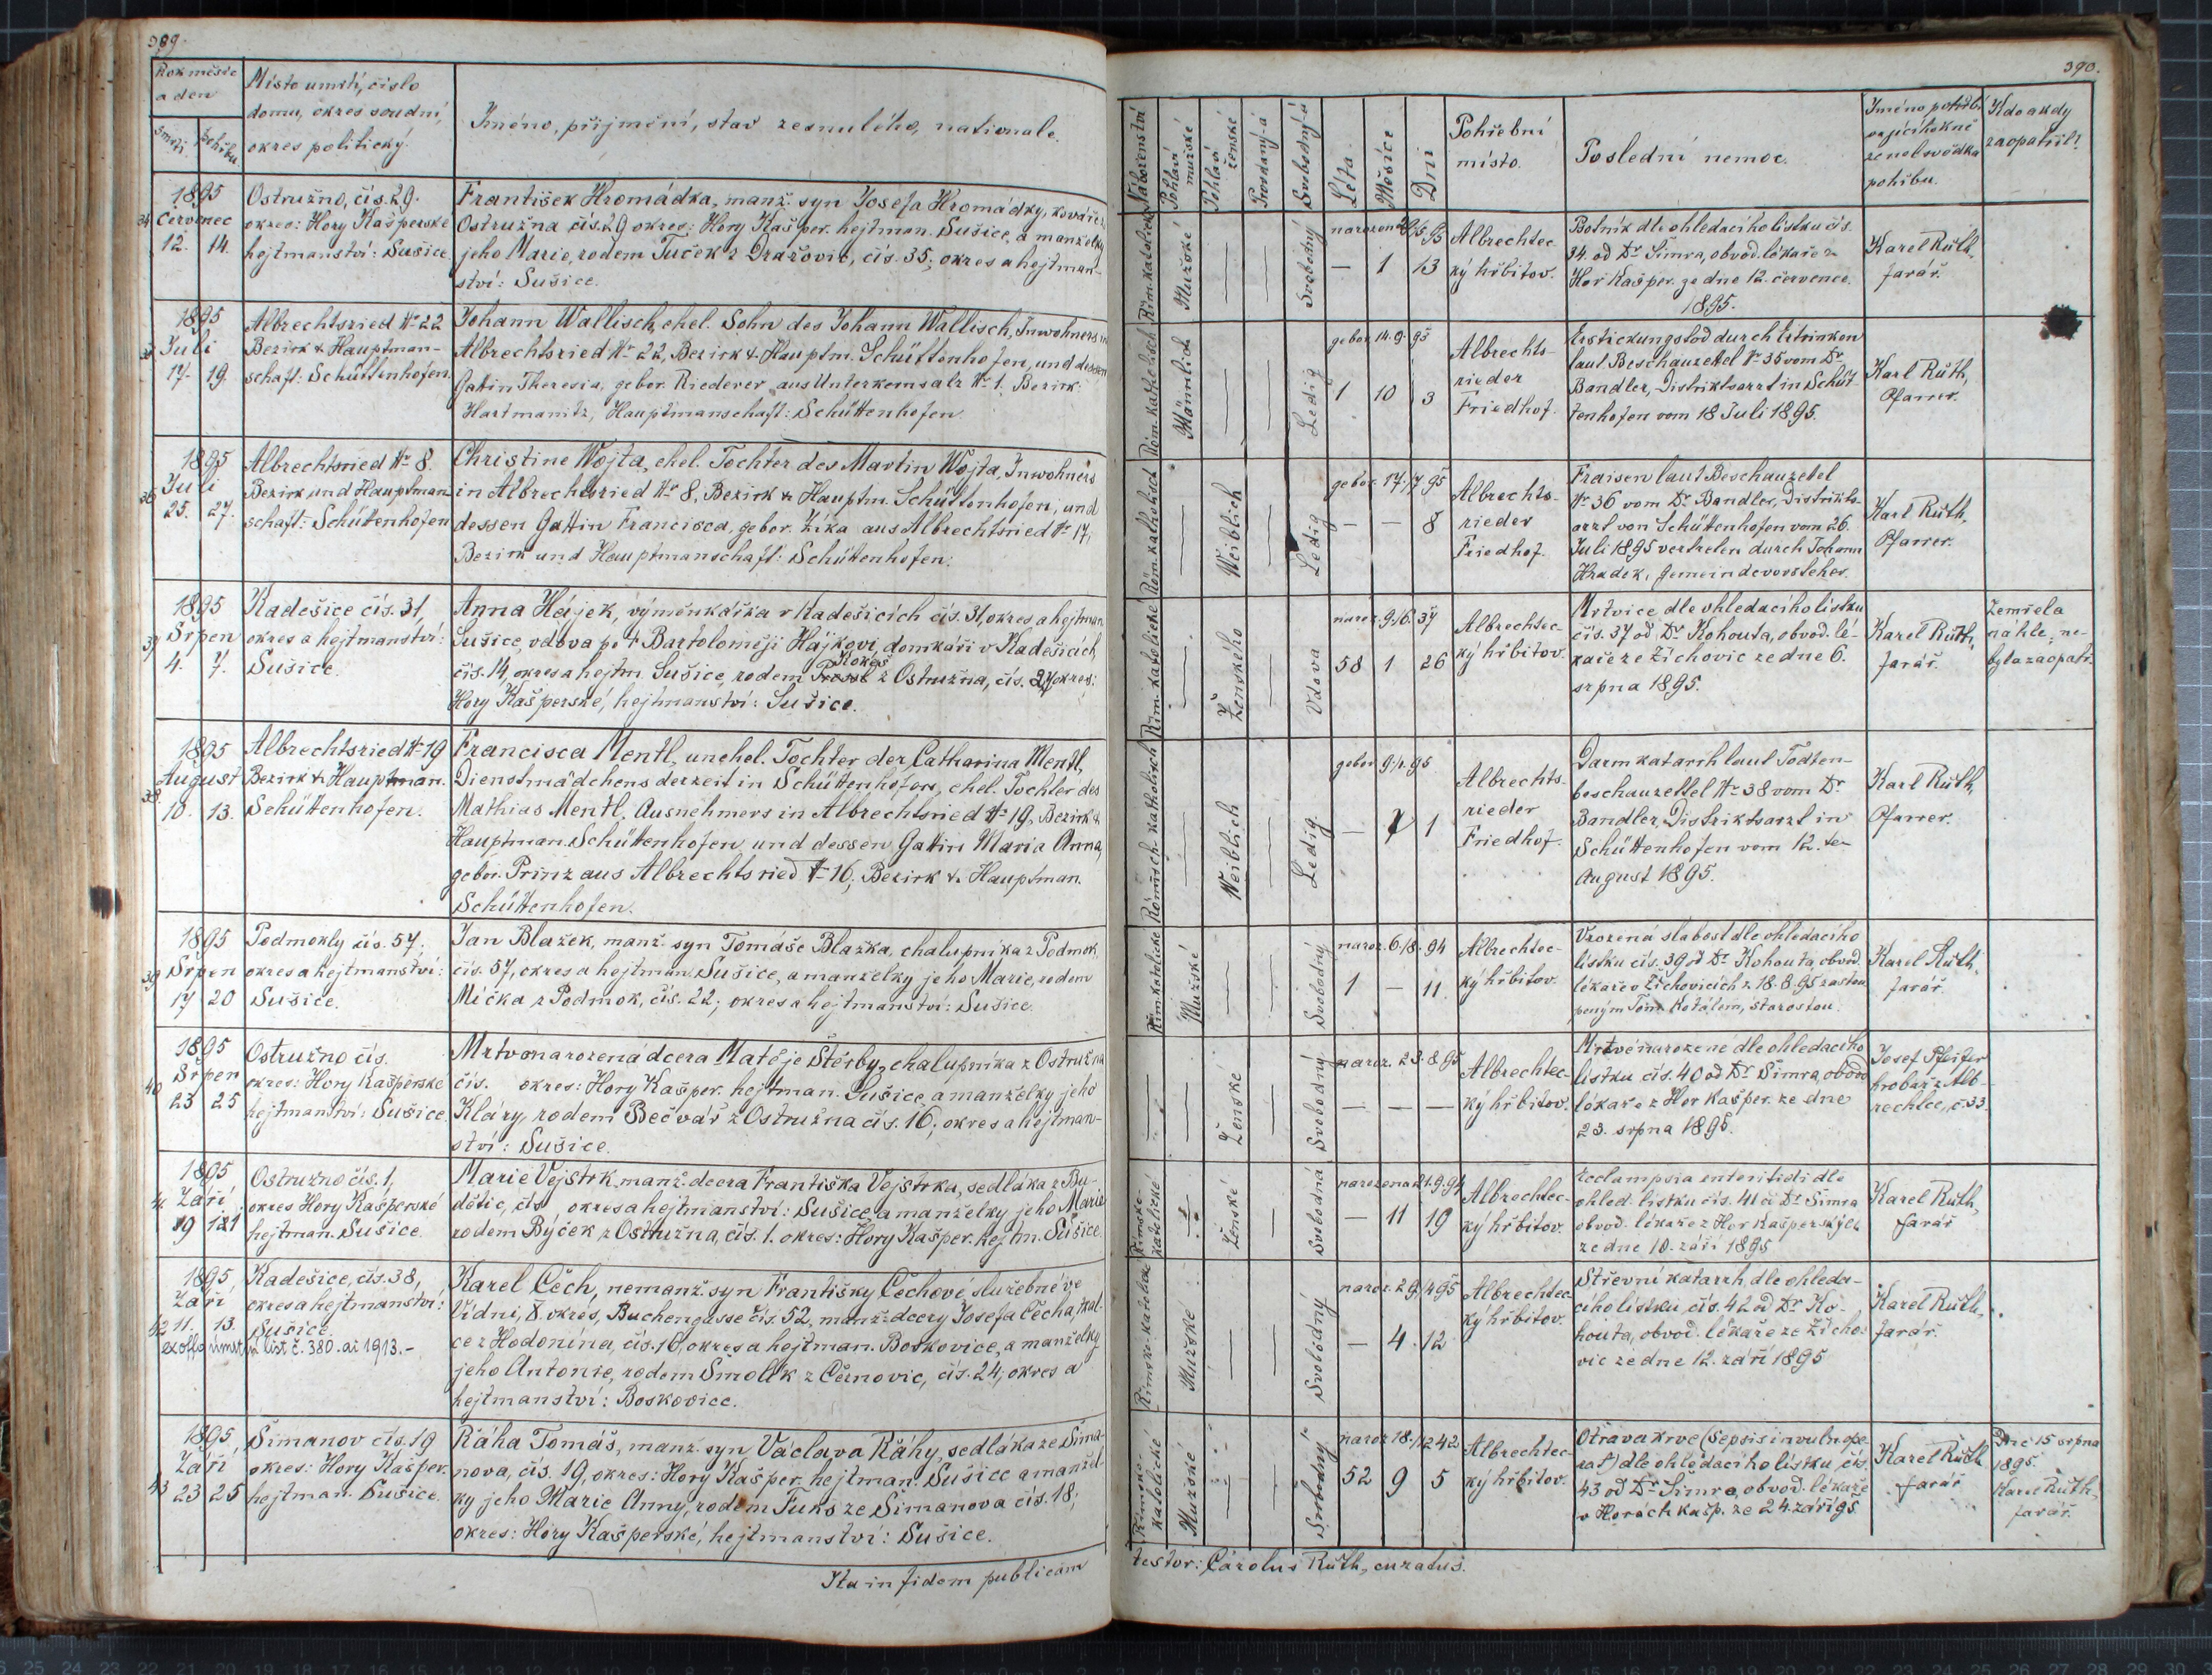 389.
Rok měsíc
a den
Smrti.
Pohřbu.
Místo úmrtí, číslo
domu, okres soudní,
okres politický.
Jméno, příjmení, stav zesnulého, nationale.
34
1895
červenec
12. 14.
Ostružno, čís. 29.
okres: Hory Kašperské
hejtmanství: Sušice.
František Hromádka, manž. syn Josefa Hromádky, kováře z
Ostružna čís. 29 okres: Hory Kašper. hejtman. Sušice, a manželky
jeho Marie, rodem Tuček z Dražovic, čís. 35; okres a hejtman-
ství: Sušice.
35
1895
Juli
17. 19.
Albrechtsried Nr 22
Bezirk & Hauptman-
schaft: Schüttenhofen.
Johann Wallisch, ehel. Sohn des Johann Wallisch, Inwohners in
Albrechtsried Nr 22, Bezirk & Hauptm. Schüttenhofen, und dessen
Gatin Theresia, gebor. Riederer aus Unterkörnsalz Nr 1. Bezirk:
Hartmanitz, Hauptmanschaft: Schüttenhofen.
36
1895
Juli
25. 27.
Albrechtsried Nr 8.
Bezirk und Hauptman
schaft: Schüttenhofen
Christine Wojta, ehel. Tochter des Martin Wojta, Inwohners
in Albrechtsried Nr 8, Bezirk & Hauptm. Schüttenhofen, und
dessen Gattin Francisca, gebor. Žika aus Albrechtsried Nr 17;
Bezirk und Hauptmanschaft: Schüttenhofen.
37
1895
Srpen
4. 7.
Kadešice čís. 31,
okres a hejtmanství:
Sušice.
Anna Hájek, výměnkářka v Kadešicích čís. 31, okres a hejtman.
Sušice, vdova po † Bartoloměji Hájkovi, domkáři v Kadešicích,
Kokeš
čís. 14, okres a hejtm. Sušice, rodem z Ostružna, čís. 27 okres:
Hory Kašperské, hejtmanství: Sušice.
38.
1895
August
10. 13.
Albrechtsried Nr 19
Bezirk & Hauptman.
Schüttenhofen.
Francisca Mentl, unehel. Tochter der Catharina Mentl,
Dienstmädchens derzeit in Schüttenhofen, ehel. Tochter des
Mathias Mentl, Ausnehmers in Albrechtsried Nr 19, Bezirk &
Hauptman. Schüttenhofen und dessen Gattin Maria Anna,
gebor. Prinz aus Albrechtsried Nr 16, Bezirk & Hauptman.
Schüttenhofen.
39
1895
Srpen
17 20
Podmokly čís. 57,
okres a hejtmanství:
Sušice.
Jan Blažek, manž. syn Tomáše Blažka, chalupníka z Podmok,
čís. 57, okres a hejtman. Sušice, a manželky jeho Marie, rodem
Mička z Podmok, čís. 22; okres a hejtmanství: Sušice.
40
1895
Srpen
23 25
Ostružno čís.
okres: Hory Kašperské
hejtmanství: Sušice.
Mrtvonarozená dcera Matěje Štěrby, chalupníka z Ostružna
čís. okres: Hory Kašper. hejtman. Sušice, a manželky jeho
Kláry, rodem Bečvář z Ostružna čís. 16; okres a hejtman-
ství: Sušice.
41.
1895
Září
19 21
Ostružno čís. 1,
okres Hory Kašperské
hejtman. Sušice.
Marie Vejstrk, manž. dcera Františka Vejstrka, sedláka z Bu-
dětic, čís. okres a hejtmanství: Sušice, a manželky jeho Marie
rodem Býček z Ostružna, čís. 1. okres: Hory Kašper. hejtm. Sušice.
42
1895
Září
11. 13.
Kadešice, čís. 38,
okres a hejtmanství:
Sušice.
ex offo úmrtn list č. 380. ai 1913.-
Karel Čech, nemanž. syn Františky Čechové, služebné ve
Vídni, X. okres, Buchengasse čís. 52, manž. dcery Josefa Čecha, tkal-
ce z Hodonína, čís. 16, okres a hejtman. Boskovice, a manželky
jeho Antonie, rodem Smolik z Černovic, čís. 24; okres a
hejtmanství: Boskovice.
43
1895
Září
23 25
Šimanov čís. 19
okres: Hory Kašper.
hejtman. Sušice.
Řáha Tomáš, manž. syn Václava Řáhy, sedláka ze Šima-
nova, čís. 19, okres: Hory Kašper. hejtman. Sušice a manžel-
ky jeho Marie Anny, rodem Fuks ze Šimanova čís. 18;
okres: Hory Kašperské, hejtmanství: Sušice.
Ita in fidem publicam
390.
Náboženství
Pohlaví mužské
Pohlaví ženské
Svobodný-á
Léta.
Měsíce
Dni
Pohřební
místo.
Poslední nemoc.
Jméno pohřbí-
vajícího kně
ze neb svědka
pohřbu.
Kdo a kdy
zaopatřil?
Řím. katolické
Mužské
Svobodný
— 1 13
Albrechtec-
ký hřbitov.
Botník dle ohledacího lístku čís.
34. od Dr. Šimra, obvod. lékaře z
Hor Kašper. ze dne 12. července
1895.
Karel Rüth,
farář.
Röm. katholisch
Männlich
Ledig
gebor. 14. 9. 93
1 10 3
Albrechts-
rieder
Friedhof.
Erstickungstod durch Ertrinken
laut Beschauzettel Nr 35 vom Dr
Bandler, Distriktsarzt in Schüt-
tenhofen vom 18 Juli 1895.
Karl Rüth,
Pfarrer.
Röm. katholisch
Weiblich
Ledig
gebor. 17/7 95
— — 8
Albrechts-
rieder
Friedhof.
Fraisen laut Beschauzetel
Nr 36 vom Dr Bandler, Distrikts-
arzt von Schüttenhofen vom 26.
Juli 1895 vertreten durch Johann
Hradek, Gemeindevorsteher.
Karl Rüth,
Pfarrer.
Řím. katolické
Ženského
Vdova
naroz. 9./6. 37
58 1 26
Albrechtec-
ký hřbitov.
Mrtvice dle ohledacího lístku
čís. 37 od Dr Kohouta, obvod. lé-
kaře ze Žichovic ze dne 6.
srpna 1895.
Karel Rüth,
farář.
Zemřela
náhle, ne-
byla zaopatř.
Römisch-katholisch
Weiblich
Ledig.
— 7 1
Albrechts-
rieder
Friedhof.
Darmkatarrh laut Todten-
beschauzettel Nr 38 vom Dr
Bandler, Distriktsarzt in
Schüttenhofen vom 12. ten
August 1895.
Karl Rüth,
Pfarrer.
Řím. katolické
Mužské
Svobodný
naroz. 6./8. 94
1 — 11
Albrechtec-
ký hřbitov.
Vrozená slabost dle ohledacího
lístku čís. 39 od Dr Kohouta, obvod.
lékaře v Žichovicích z 18. 8. 95 zastou
peným Tom. Kotálem, starostou.
Karel Rüth,
farář.
Ženské
Svobodný
naroz. 23. 8. 95
— — —
Albrechtec-
ký hřbitov.
Mrtvě narozené dle ohledacího
lístku čís. 40 od Dr Šimra, obvod
lékaře z Hor Kašper. ze dne
23. srpna 1895.
Josef Pfeifer
hrobař z Alb-
rechtec, č. 33.
Římsko-
katolické
Ženské
Svobodná
narozena 21. 9. 94
— 11 19
Albrechtec-
ký hřbitov.
Ecclampsia enteritidi dle
ohled. lístku čís. 41 od Dr Šimra
obvod. lékaře z Hor Kašperských
ze dne 10. září 1895
Karel Rüth,
farář
Římsko-katolické
Mužské
Svobodný
naroz. 29/4 95
— 4 12
Albrechtec-
ký hřbitov.
Střevní katarrh, dle ohleda-
cího lístku, čís. 42 od Dr Ko-
houta, obvod. lékaře ze Žicho-
vic ze dne 12. září 1895
Karel Rüth,
farář.
Římsko-
katolické
Mužské
Svobodný
naroz 18./12 42
52 9 5
Albrechtec-
ký hřbitov.
Otrava krve (Sepsis in vuln. ope-
rat) dle ohledacího lístku, čís.
43 od Dr Šimra, obvod. lékaře
v Horách Kašp. ze 24. září 95
Karel Rüth
farář
Dne 15 srpna
1895.
Karel Rüth,
farář.
testor: Carolus Rüth, curatus.